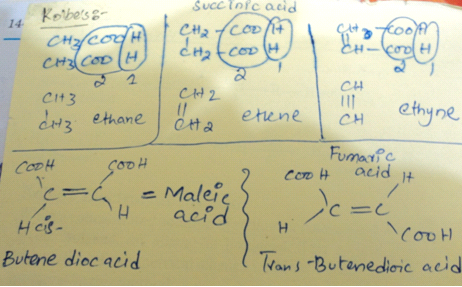 14
Kolbe's:-
CH3 COO H
CH3 COO H
2 1
CH3
CH3 ethane
Succinic acid
CH2 - COO H
CH2 - COO H
2 1
CH2
||
CH2 ethene
COO H
CH - COO H
2 1
CH
|||
CH ethyne
COOH COOH
C = C
H cis- H
= Maleic
acid
Butene dioc acid
Fumaric
acid
COOH H
C = C
H COOH
Trans-Butenedioic acid